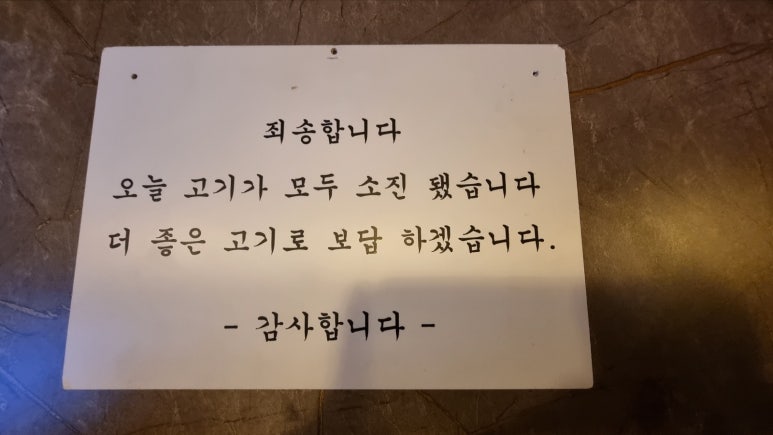 죄송합니다
오늘 고기가 모두 소진 됐습니다
더 좋은 고기로 보답 하겠습니다.
- 감사합니다 -